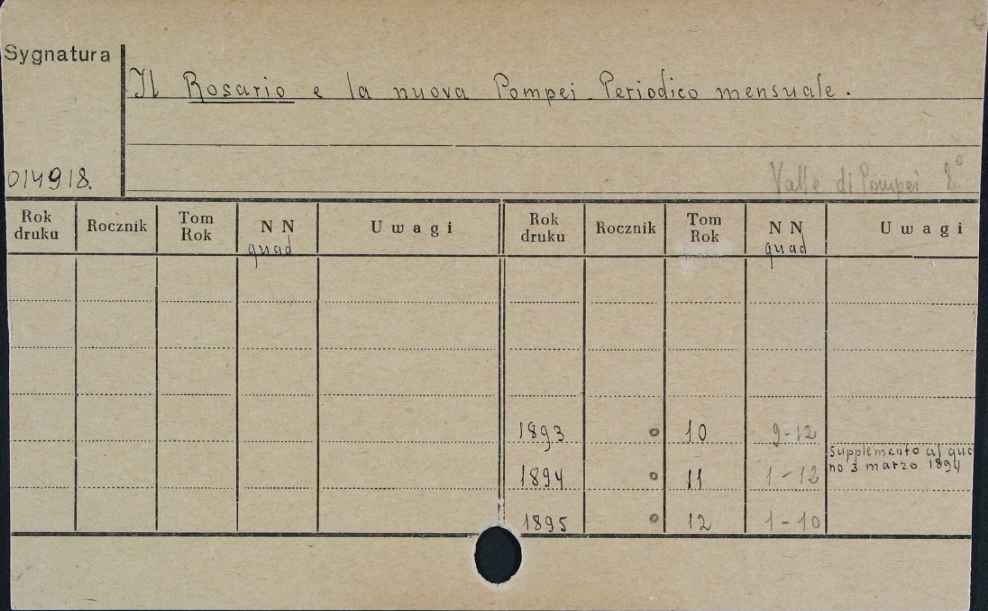 Sygnatura
Il Rosario e la nuova Pompei Periodico mensuale.
014918.
Valle di Pompei 8°
Rok druku Rocznik Tom Rok NN quad Uwagi Rok druku Rocznik Tom Rok NN quad Uwagi
1893 o 10 9-12
1894 o 11 1-12 Supplemento al qua
no 3 marzo 1894
1895 o 12 1-10